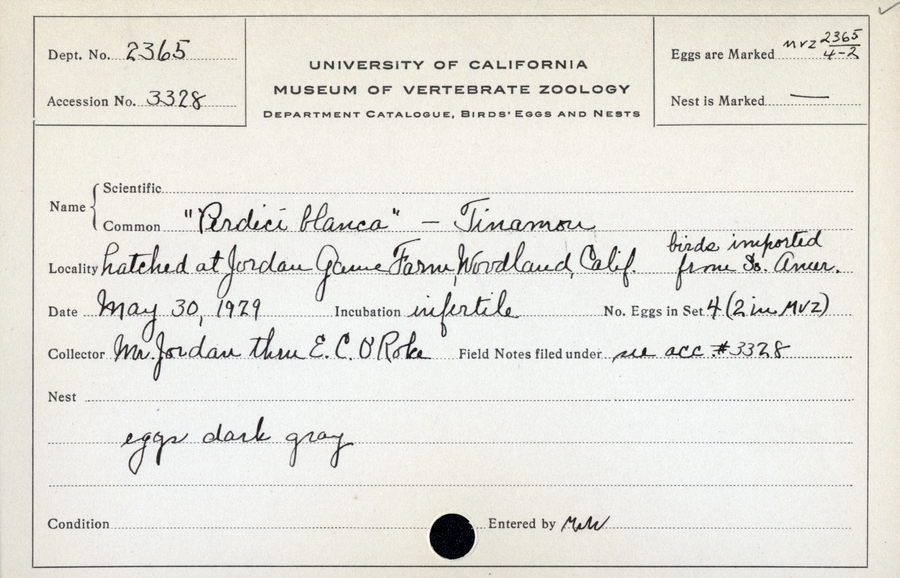 Dept. No. 2365
Accession No. 3328
UNIVERSITY OF CALIFORNIA
MUSEUM OF VERTEBRATE ZOOLOGY
DEPARTMENT CATALOGUE, BIRDS' EGGS AND NESTS
Eggs are Marked MVZ 2365/4-2
Nest is Marked —
Name
Scientific
Common "Perdici blanca" – Tinamou
Locality hatched at Jordan Game Farm, Woodland, Calif. birds imported from So. Amer.
Date May 30, 1929 Incubation infertile No. Eggs in Set 4 (2 in MVZ)
Collector Mr. Jordan thru E. C. O'Roke Field Notes filed under see acc #3328
Nest
eggs dark gray
Condition Entered by